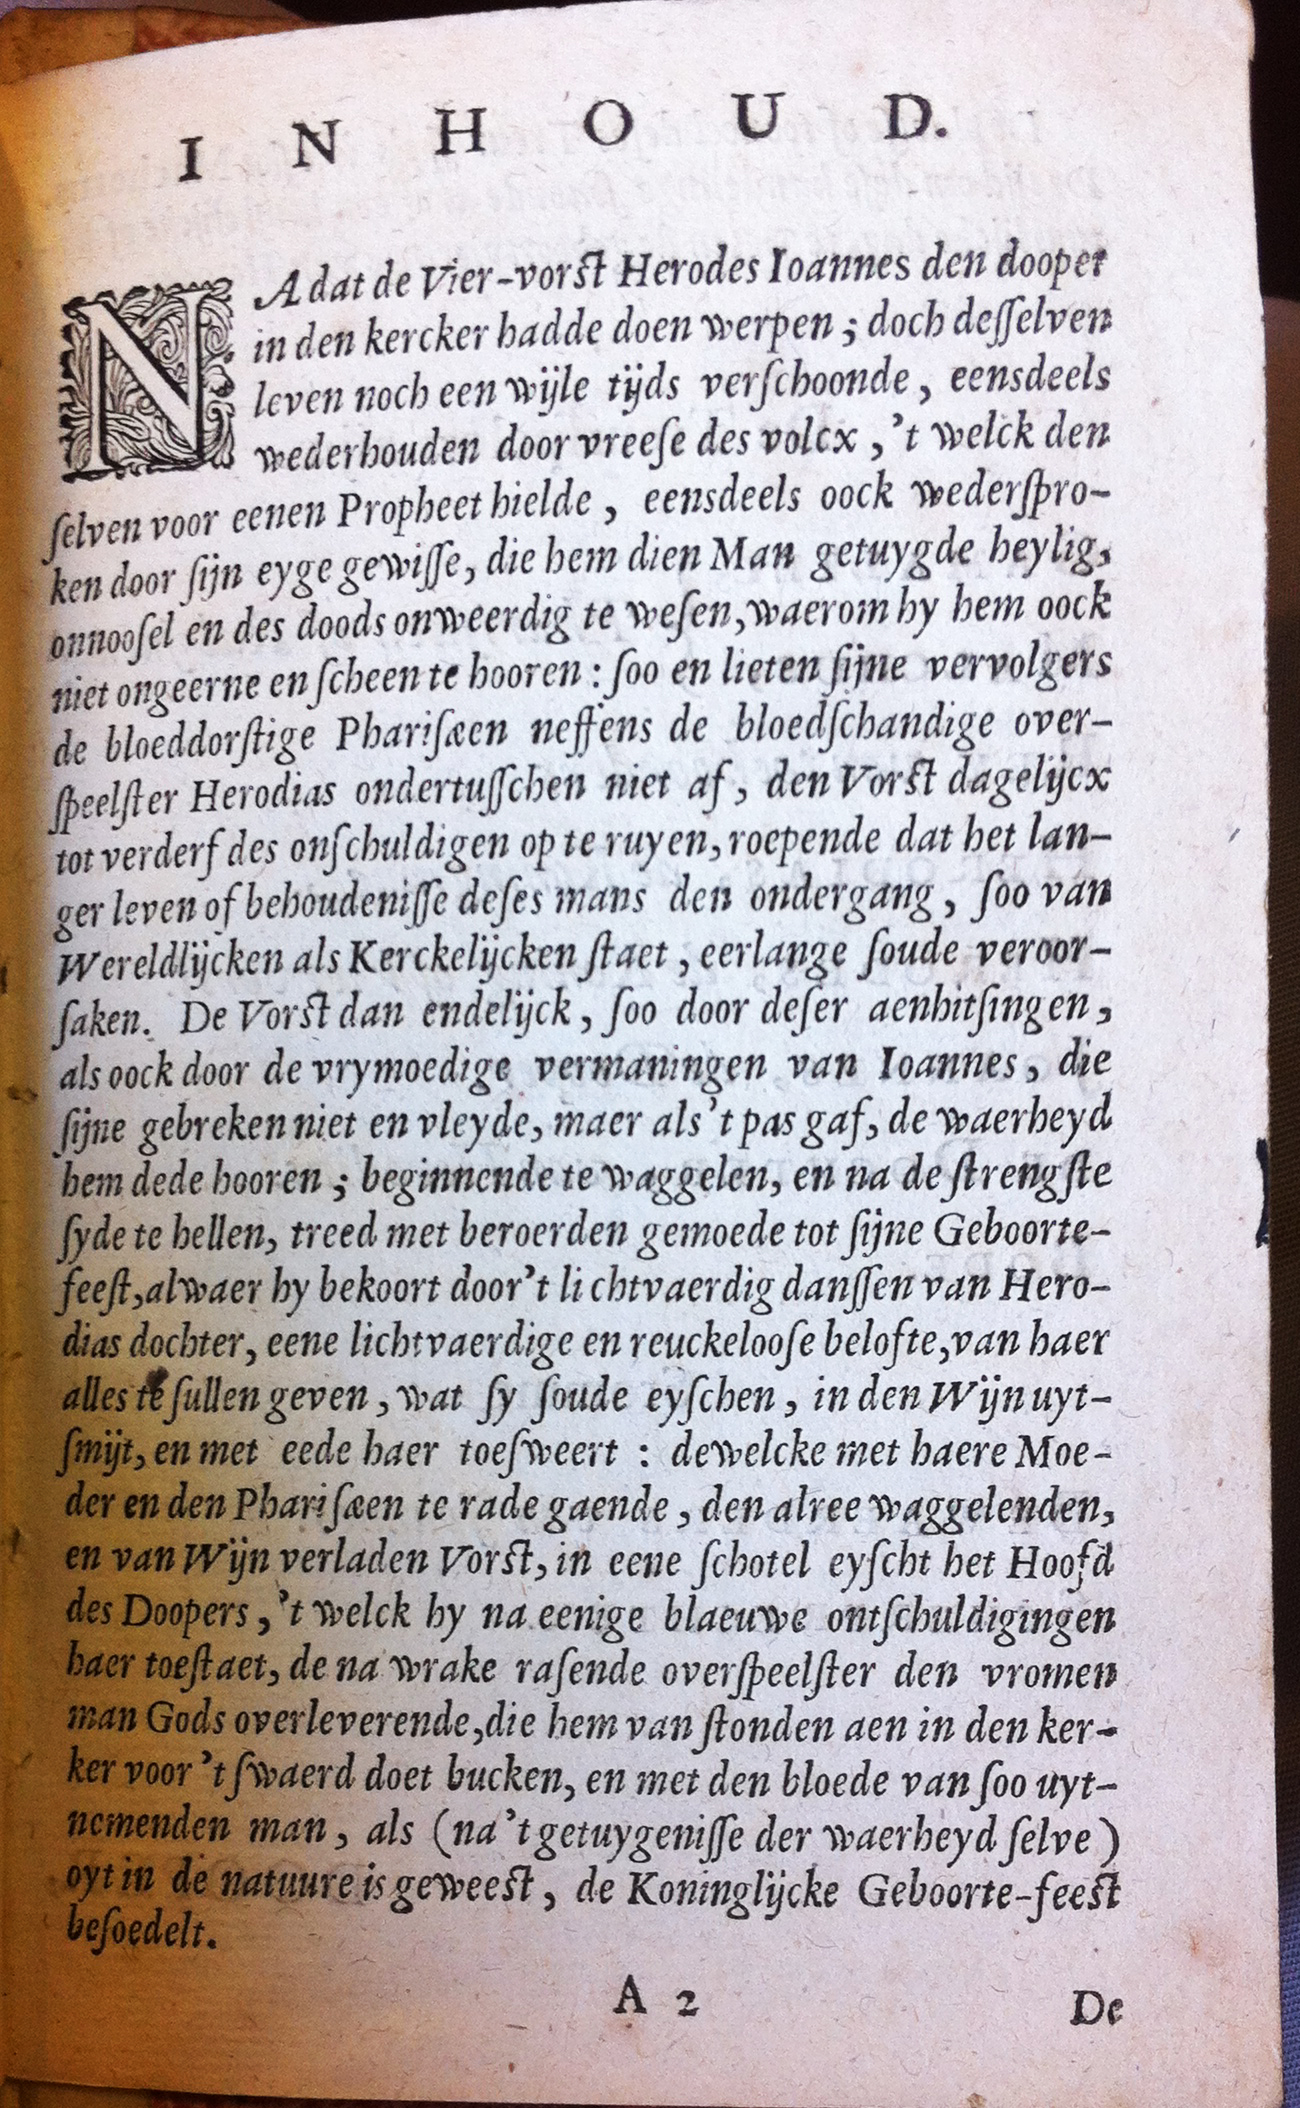 INHOUD.
NA dat de Vier-vorſt Herodes Ioannes den dooper
in den kercker hadde doen werpen ; doch deſſelven
leven noch een wijle tijds verſchoonde , eensdeels
wederhouden door vreeſe des volcx , 't welck den
ſelven voor eenen Propheet hielde , eensdeels oock wederſpro-
ken door ſijn eyge gewiſſe, die hem dien Man getuygde heylig,
onnooſel en des doods onweerdig te weſen, waerom hy hem oock
niet ongeerne en ſcheen te hooren : ſoo en lieten ſijne vervolgers
de bloeddorſtige Phariſæen neffens de bloedſchandige over-
ſpeelſter Herodias ondertuſſchen niet af , den Vorſt dagelijcx
tot verderf des onſchuldigen op te ruyen, roepende dat het lan-
ger leven of behoudeniſſe deſes mans den ondergang , ſoo van
Wereldlijcken als Kerckelijcken ſtaet , eerlange ſoude veroor-
ſaken. De Vorſt dan endelijck , ſoo door deſer aenhitſingen ,
als oock door de vrymoedige vermaningen van Ioannes , die
ſijne gebreken niet en vleyde, maer als 't pas gaf, de waerheyd
hem dede hooren ; beginnende te waggelen, en na de ſtrengſte
ſyde te hellen, treed met beroerden gemoede tot ſijne Geboorte-
feeſt, alwaer hy bekoort door 't li chtvaerdig danſſen van Hero-
dias dochter, eene lichtvaerdige en reuckelooſe belofte, van haer
alles te ſullen geven , wat ſy ſoude eyſchen , in den Wijn uyt-
ſmijt, en met eede haer toeſweert : dewelcke met haere Moe-
der en den Phariſæen te rade gaende , den alree waggelenden,
en van Wijn verladen Vorſt, in eene ſchotel eyſcht het Hoofd
des Doopers , 't welck hy na eenige blaeuwe ontſchuldigingen
haer toeſtaet, de na wrake raſende overſpeelſter den vromen
man Gods overleverende, die hem van ſtonden aen in den ker-
ker voor 't ſwaerd doet bucken, en met den bloede van ſoo uyt-
nemenden man , als (na 't getuygeniſſe der waerheyd ſelve )
oyt in de natuure is geweeſt , de Koninglijcke Geboorte-feeſt
beſoedelt.
A 2 De